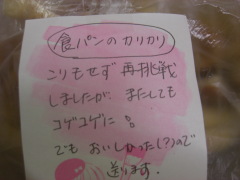 食パンのカリカリ
こりもせず 再挑戦
しましたが、またしても
コゲコゲに。
でも おいしかった(?)ので
送ります。